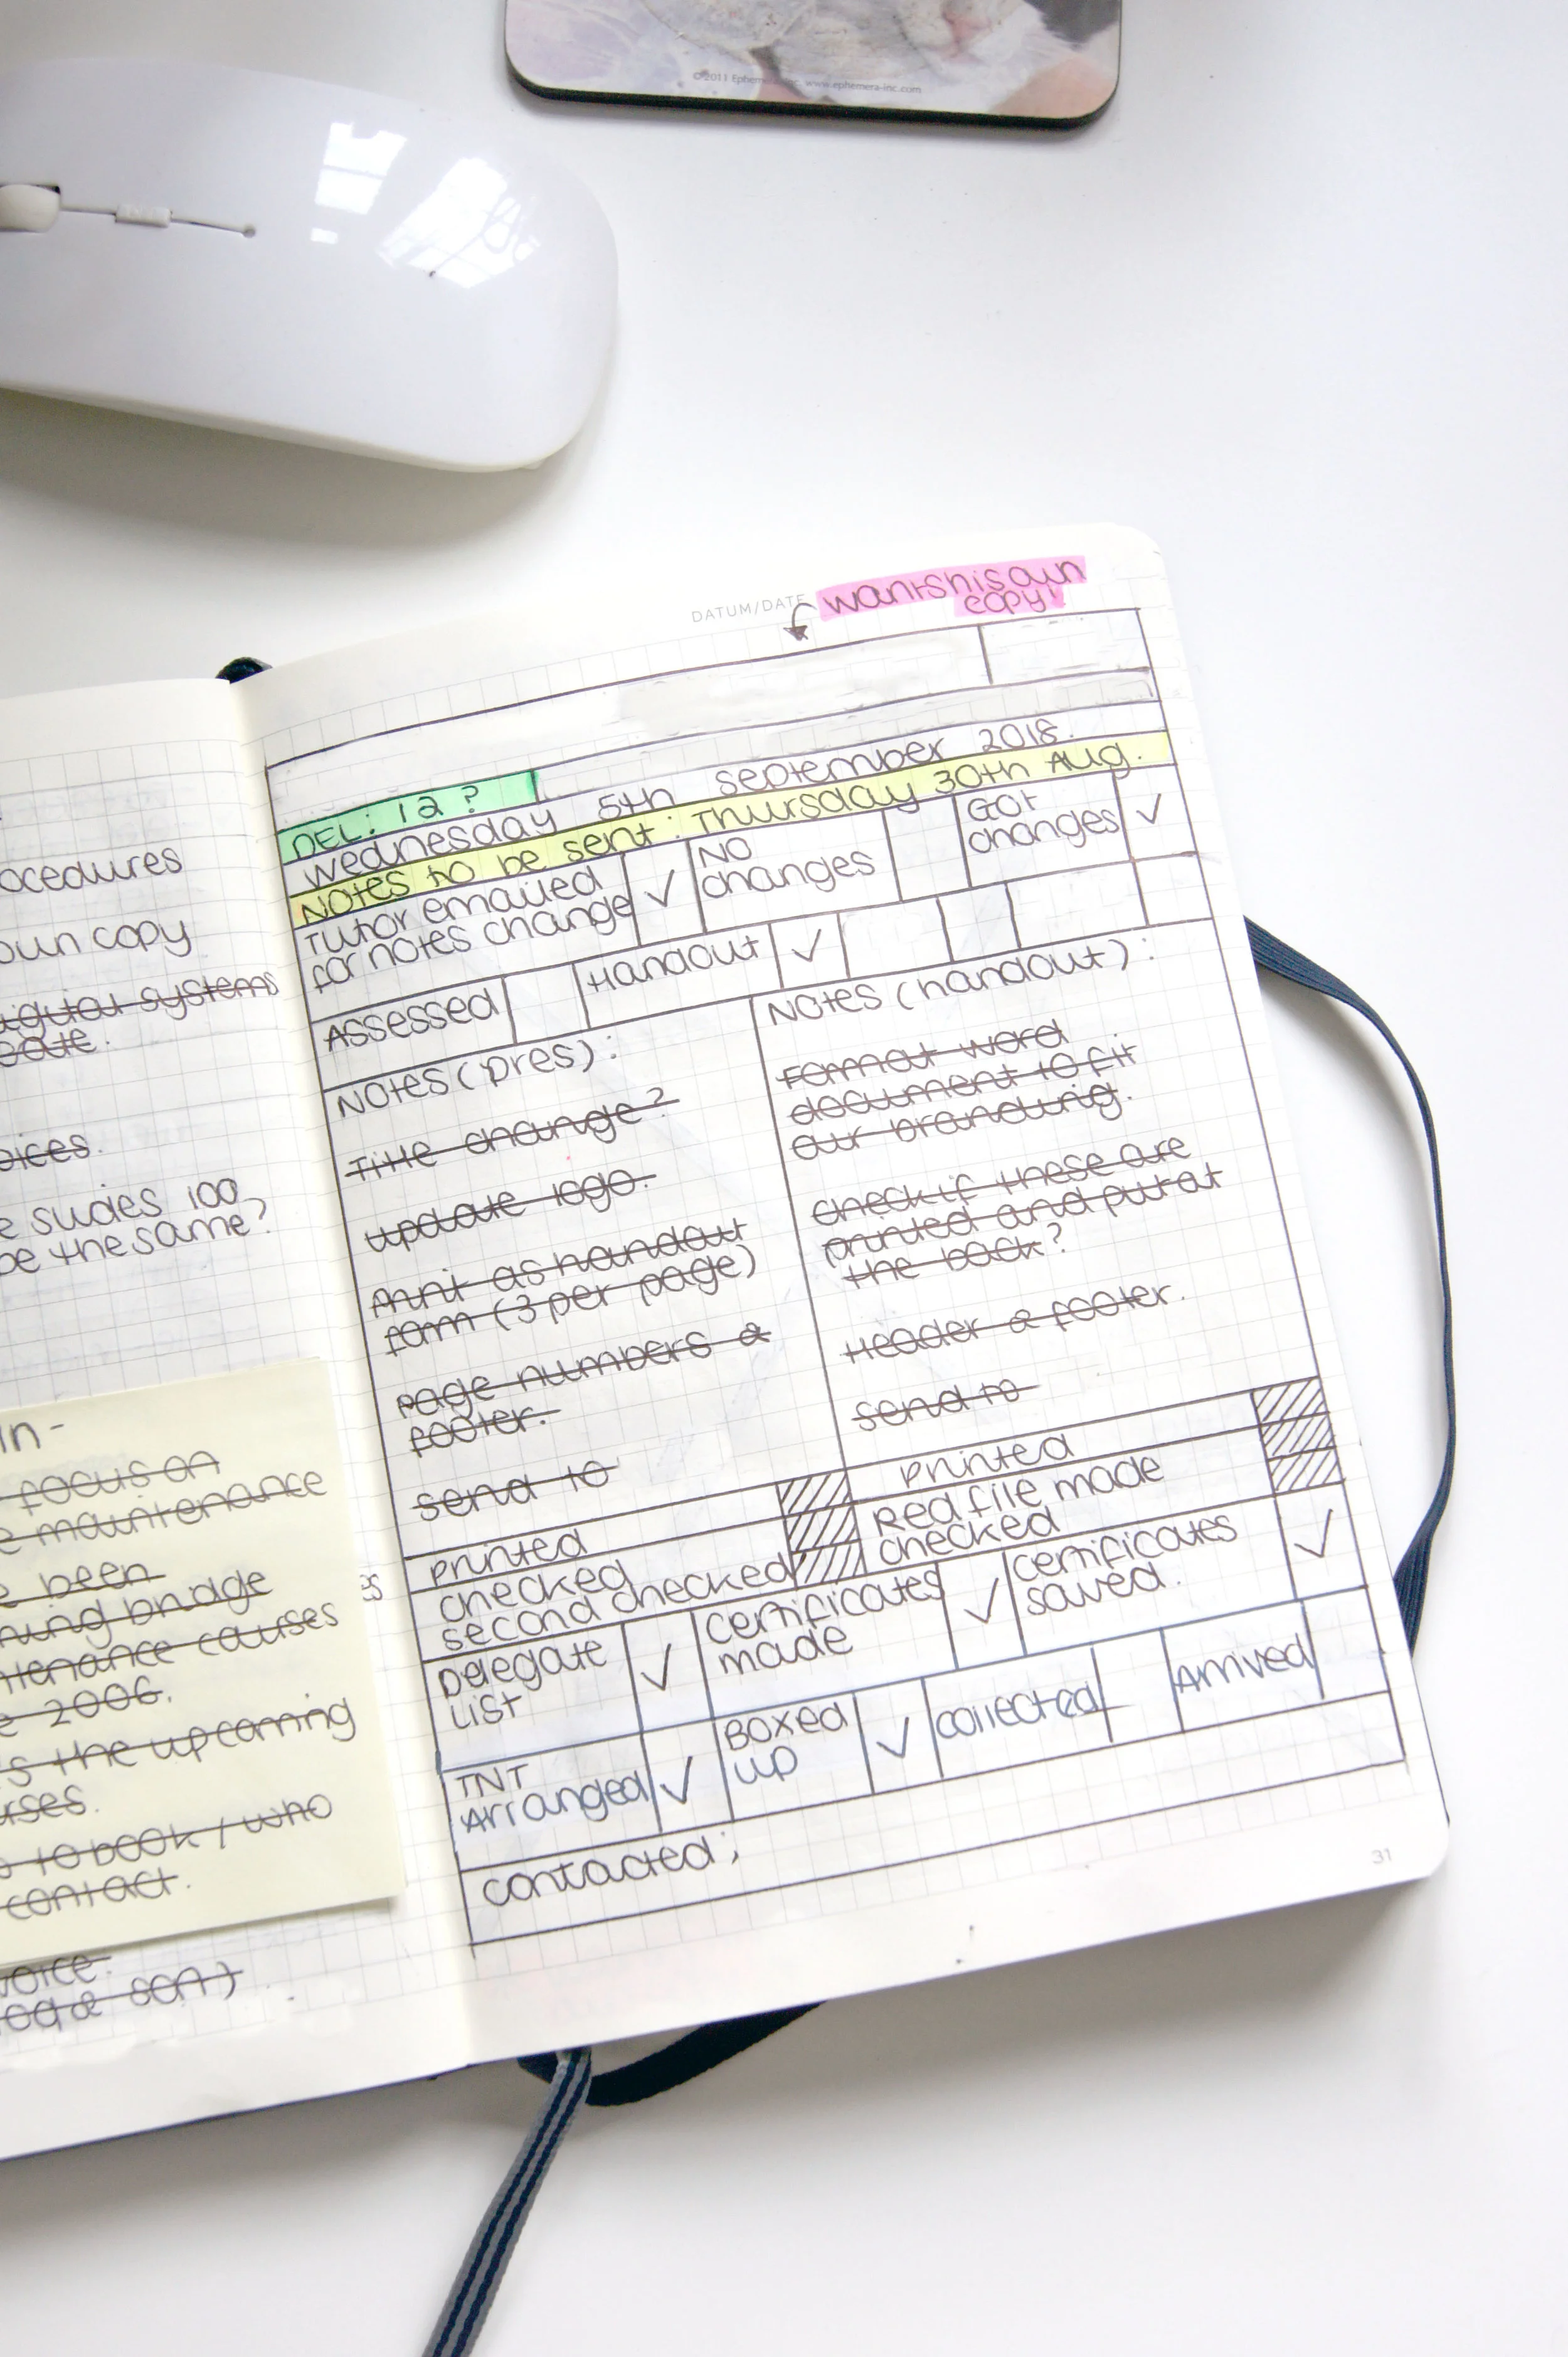 ©2011 Ephemera-Inc. www.ephemera-inc.com
DATUM/DATE
wants his own
copy!
DEL: 12?
Wednesday 5th September 2018.
Notes to be sent: Thursday 30th Aug.
Tutor emailed
for notes change ✓
No
changes
Got
changes ✓
Assessed
Handout ✓
Notes (pres):
Title change?
update logo.
Print as handout
form (3 per page)
Page numbers &
footer.
send to
Notes (handout):
Format word
document to fit
our branding.
check if these are
printed and put at
the back?
Header & footer.
send to
printed
checked
second checked
printed
Red file made
checked
Delegate
List ✓
Certificates
made ✓
Certificates
saved. ✓
TNT
Arranged ✓
Boxed
up ✓
collected
Arrived
contacted;
31
ocedures
own copy
digital systems
oices.
e slides 100
be the same?
In-
focus on
e maintenance
e been
ning bridge
ntenance courses
e 2006.
s the upcoming
urses.
to book / who
contact.
es
voice.
sent)